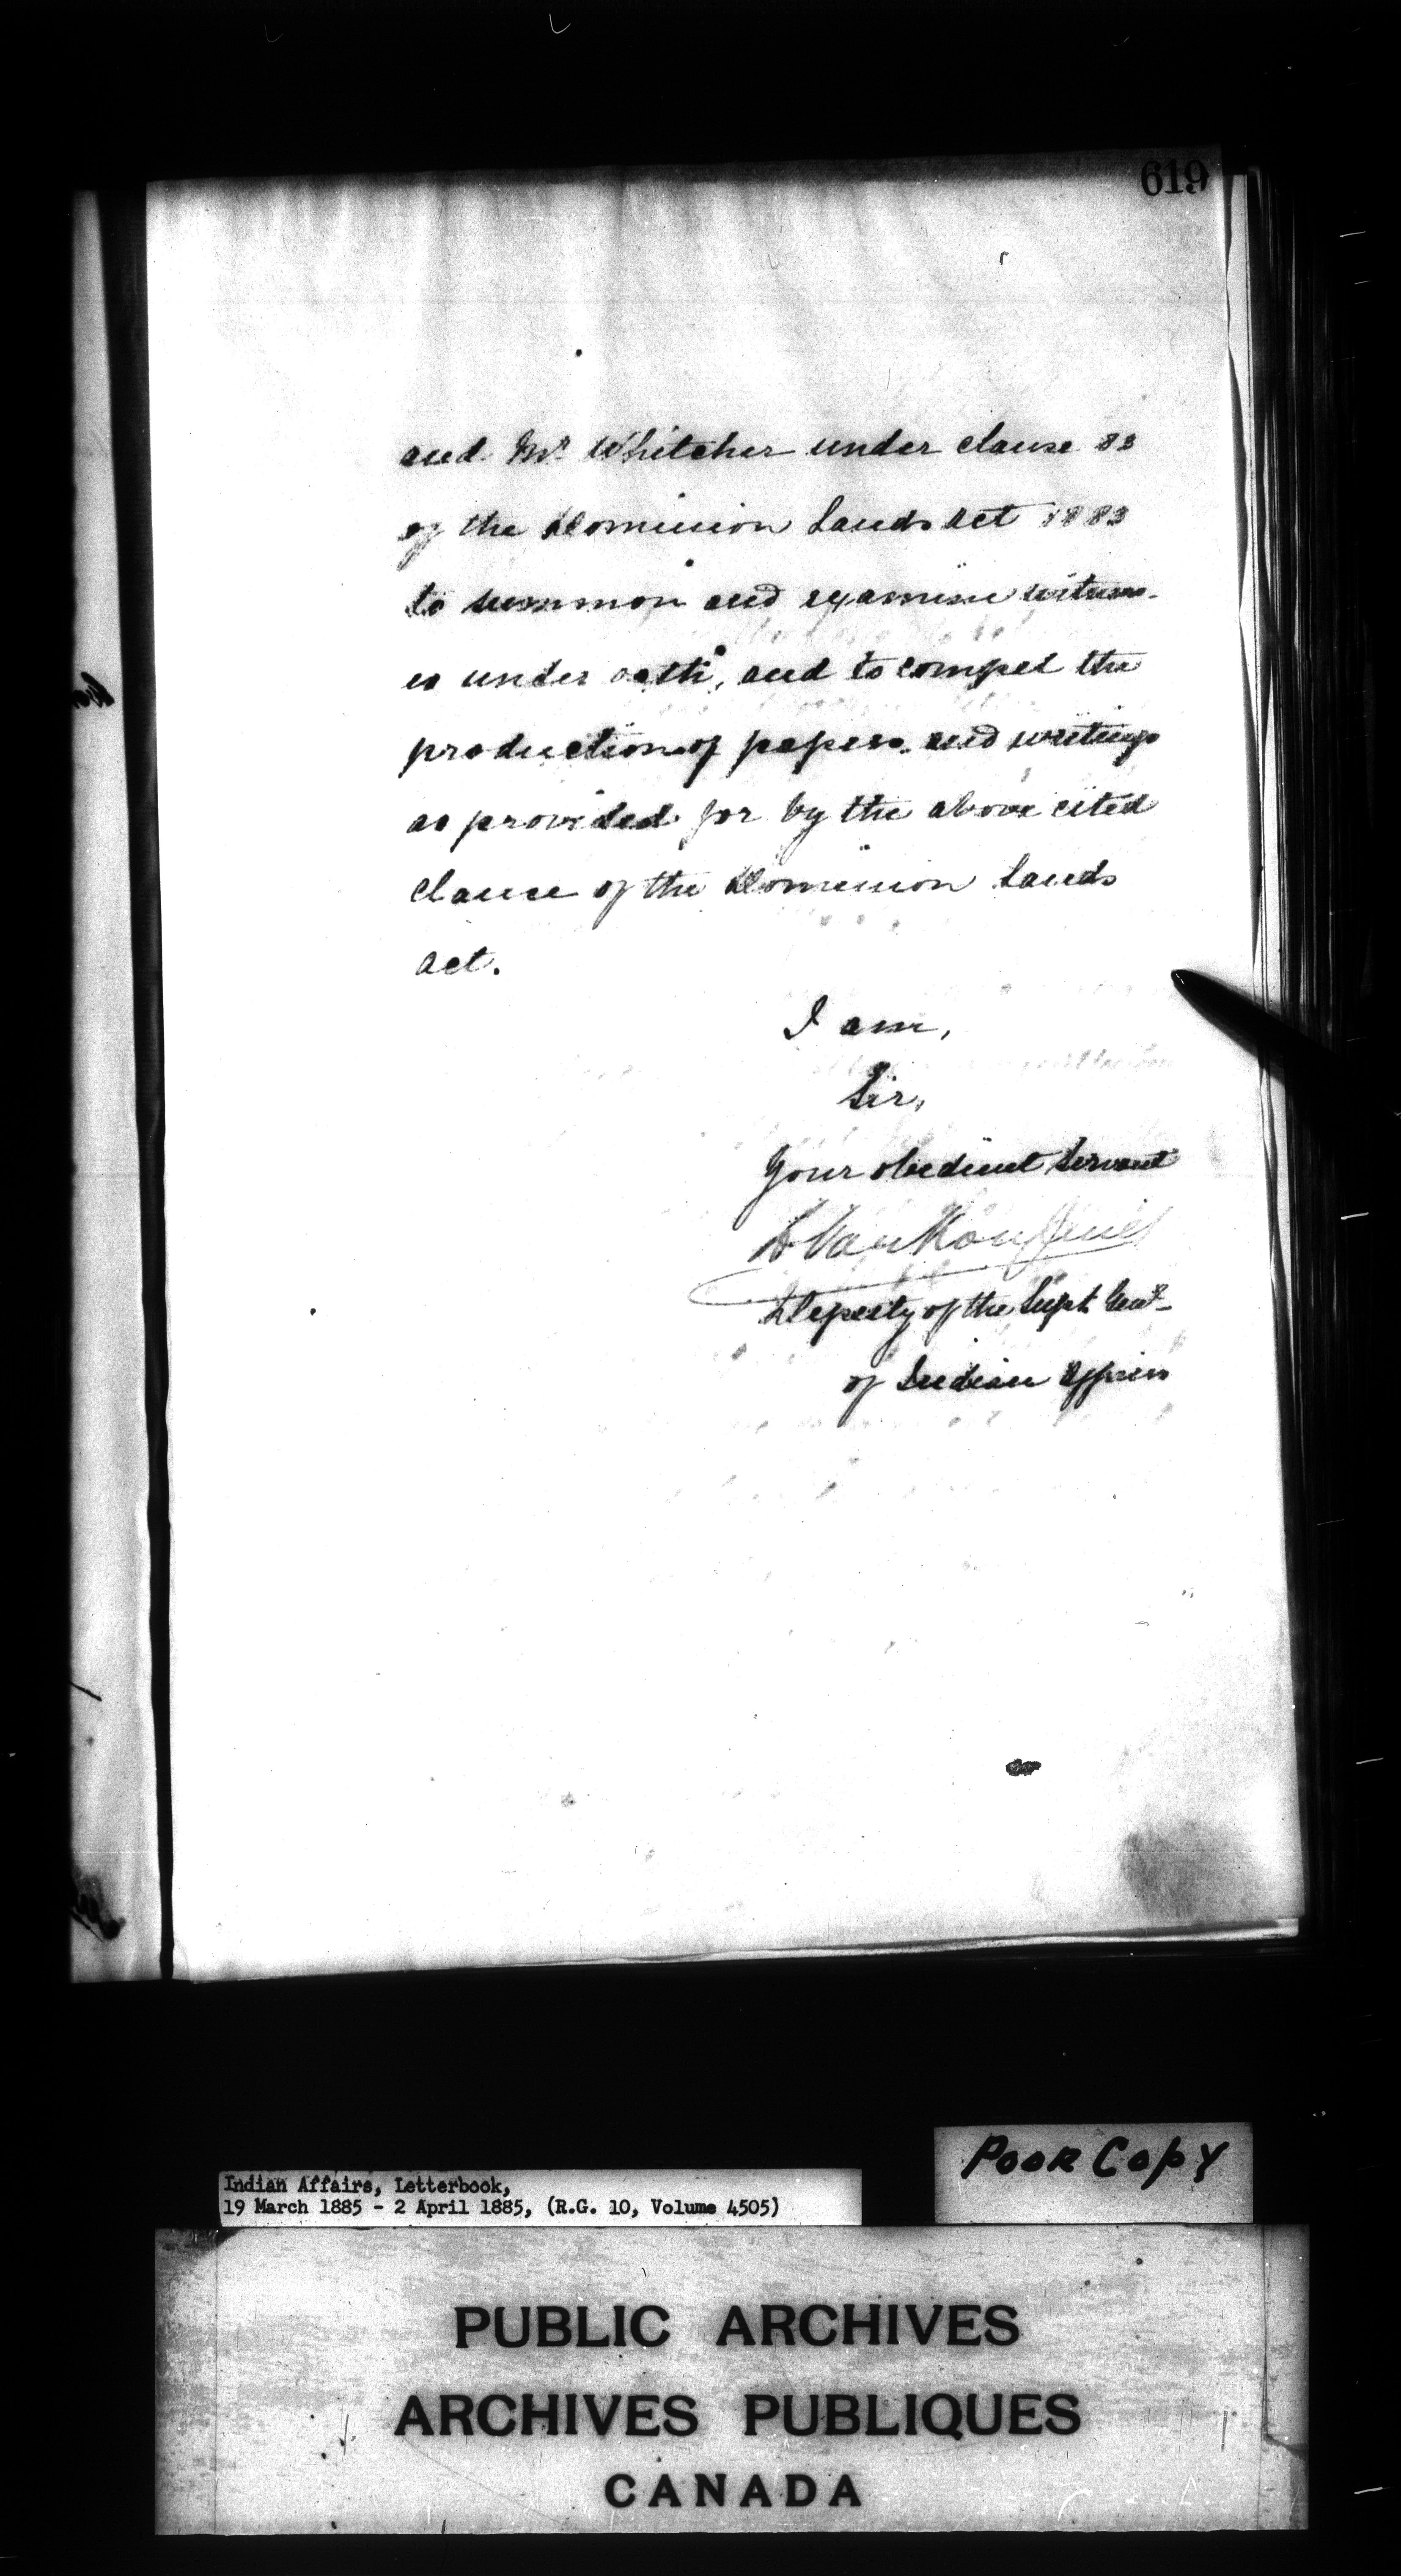 619
and Mr Whitcher under clause 83
of the Dominion Lands Act 1883
to summon and examine witness-
es under oath, and to compel the
production of papers and writings
as provided for by the above cited
clause of the Dominion Lands
Act.
I am,
Sir,
Your obedient Servant
L VanKoughnet
Deputy of the Supt. Genl.
of Indian Affairs
POOR COPY
Indian Affairs, Letterbook,
19 March 1885 - 2 April 1885, (R.G. 10, Volume 4505)
PUBLIC ARCHIVES
ARCHIVES PUBLIQUES
CANADA